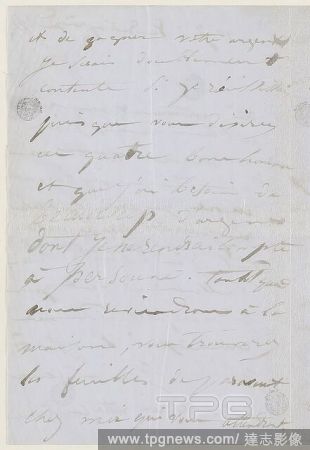 et de gagner votre argent
je serais doublement
contente si je réussis
puisque vous désirez
ce quatre bonhomme
et que j'ai besoin de
beaucoup d'argent
dont je ne rendrai compte
à personne. Tantôt quand
nous reviendrons à la
maison, vous trouverez
les feuilles de
chez moi qui vous attendent
TPG
www.tpgnews.com / 達志影像